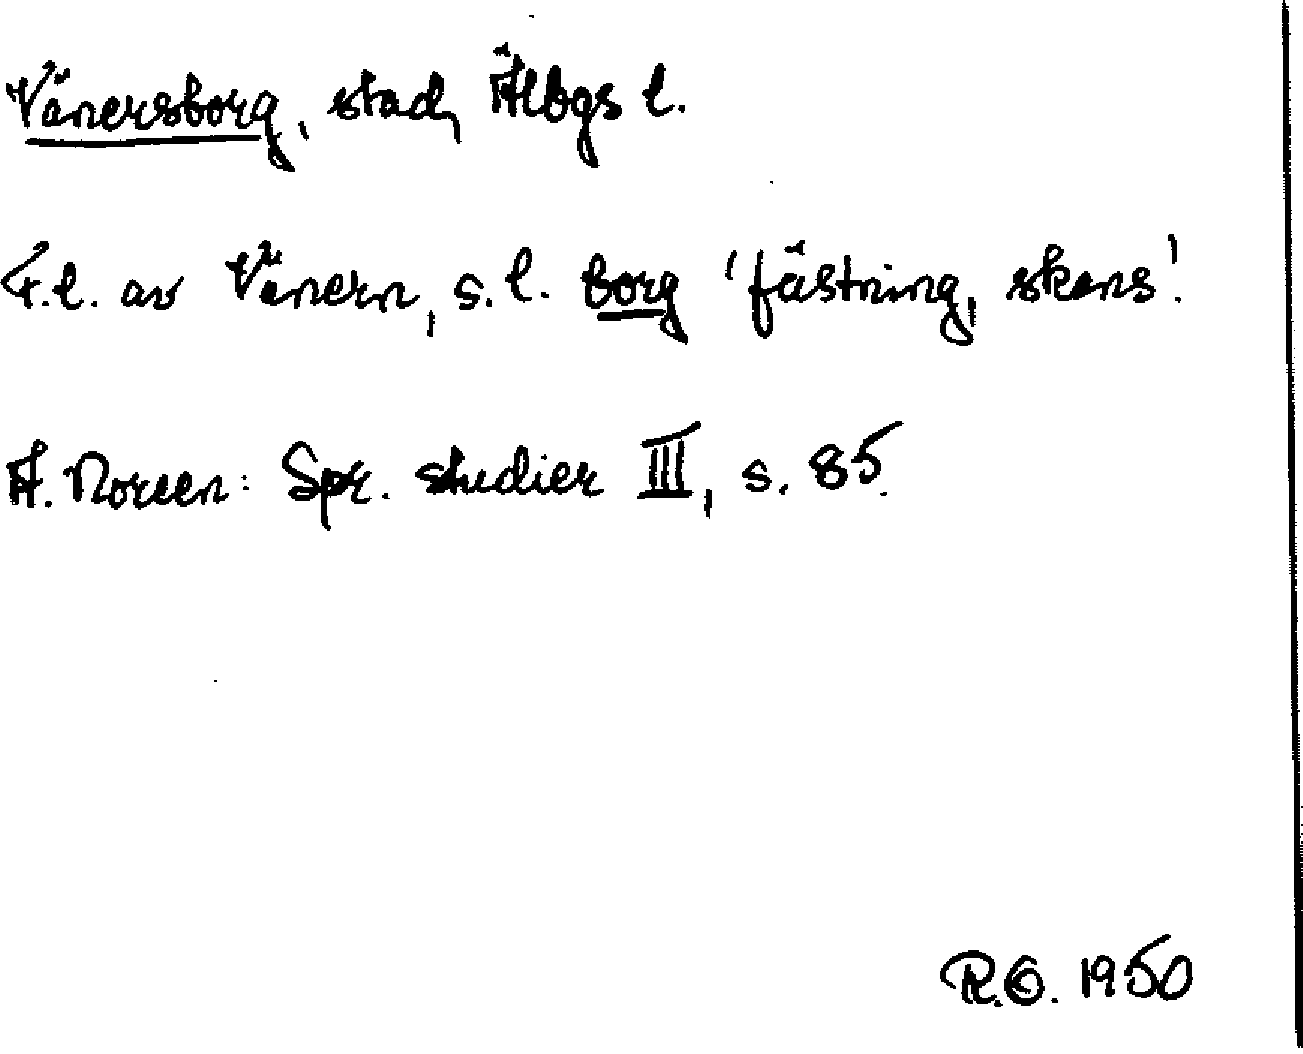 Vänersborg, stad, Älbgs l.
F.l. av Vänern, s.l. borg 'fästning, skans'.
A. Noreen: Spr. studier III, s. 85.
R.Ö. 1950